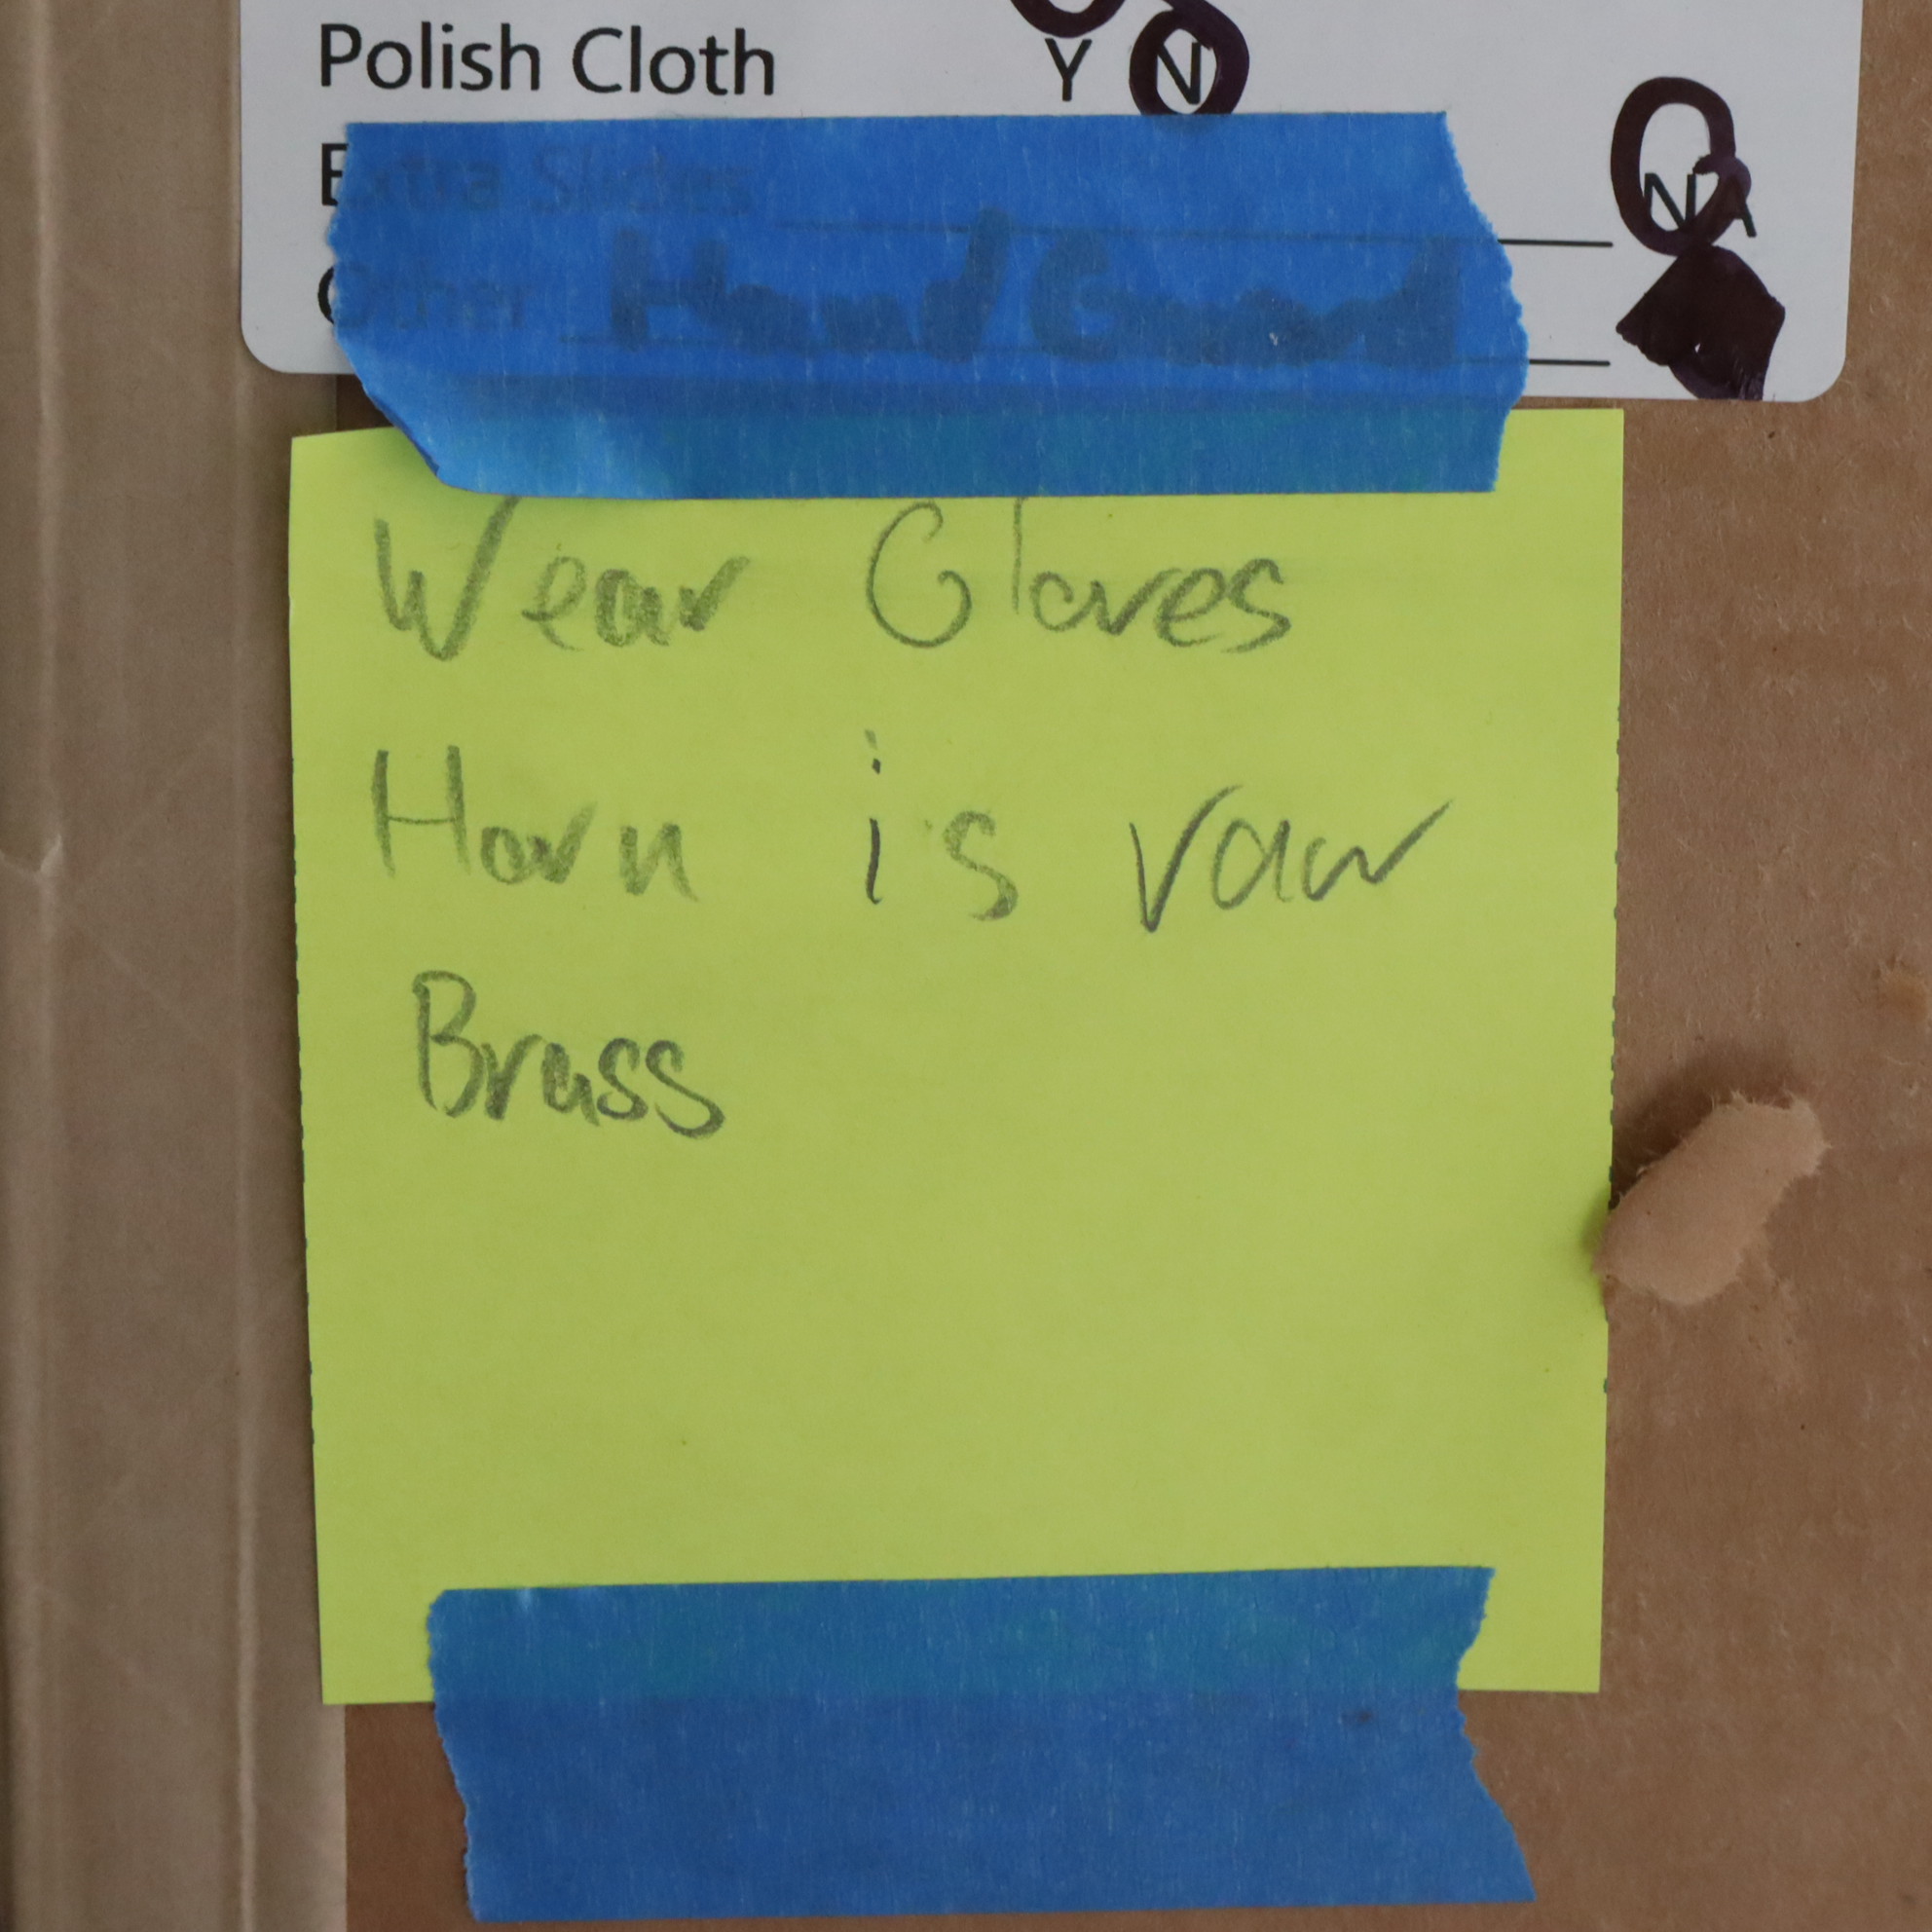 Polish Cloth Y N
Extra Slides NA
Other Hand Guard
Wear Gloves
Horn is raw
Brass